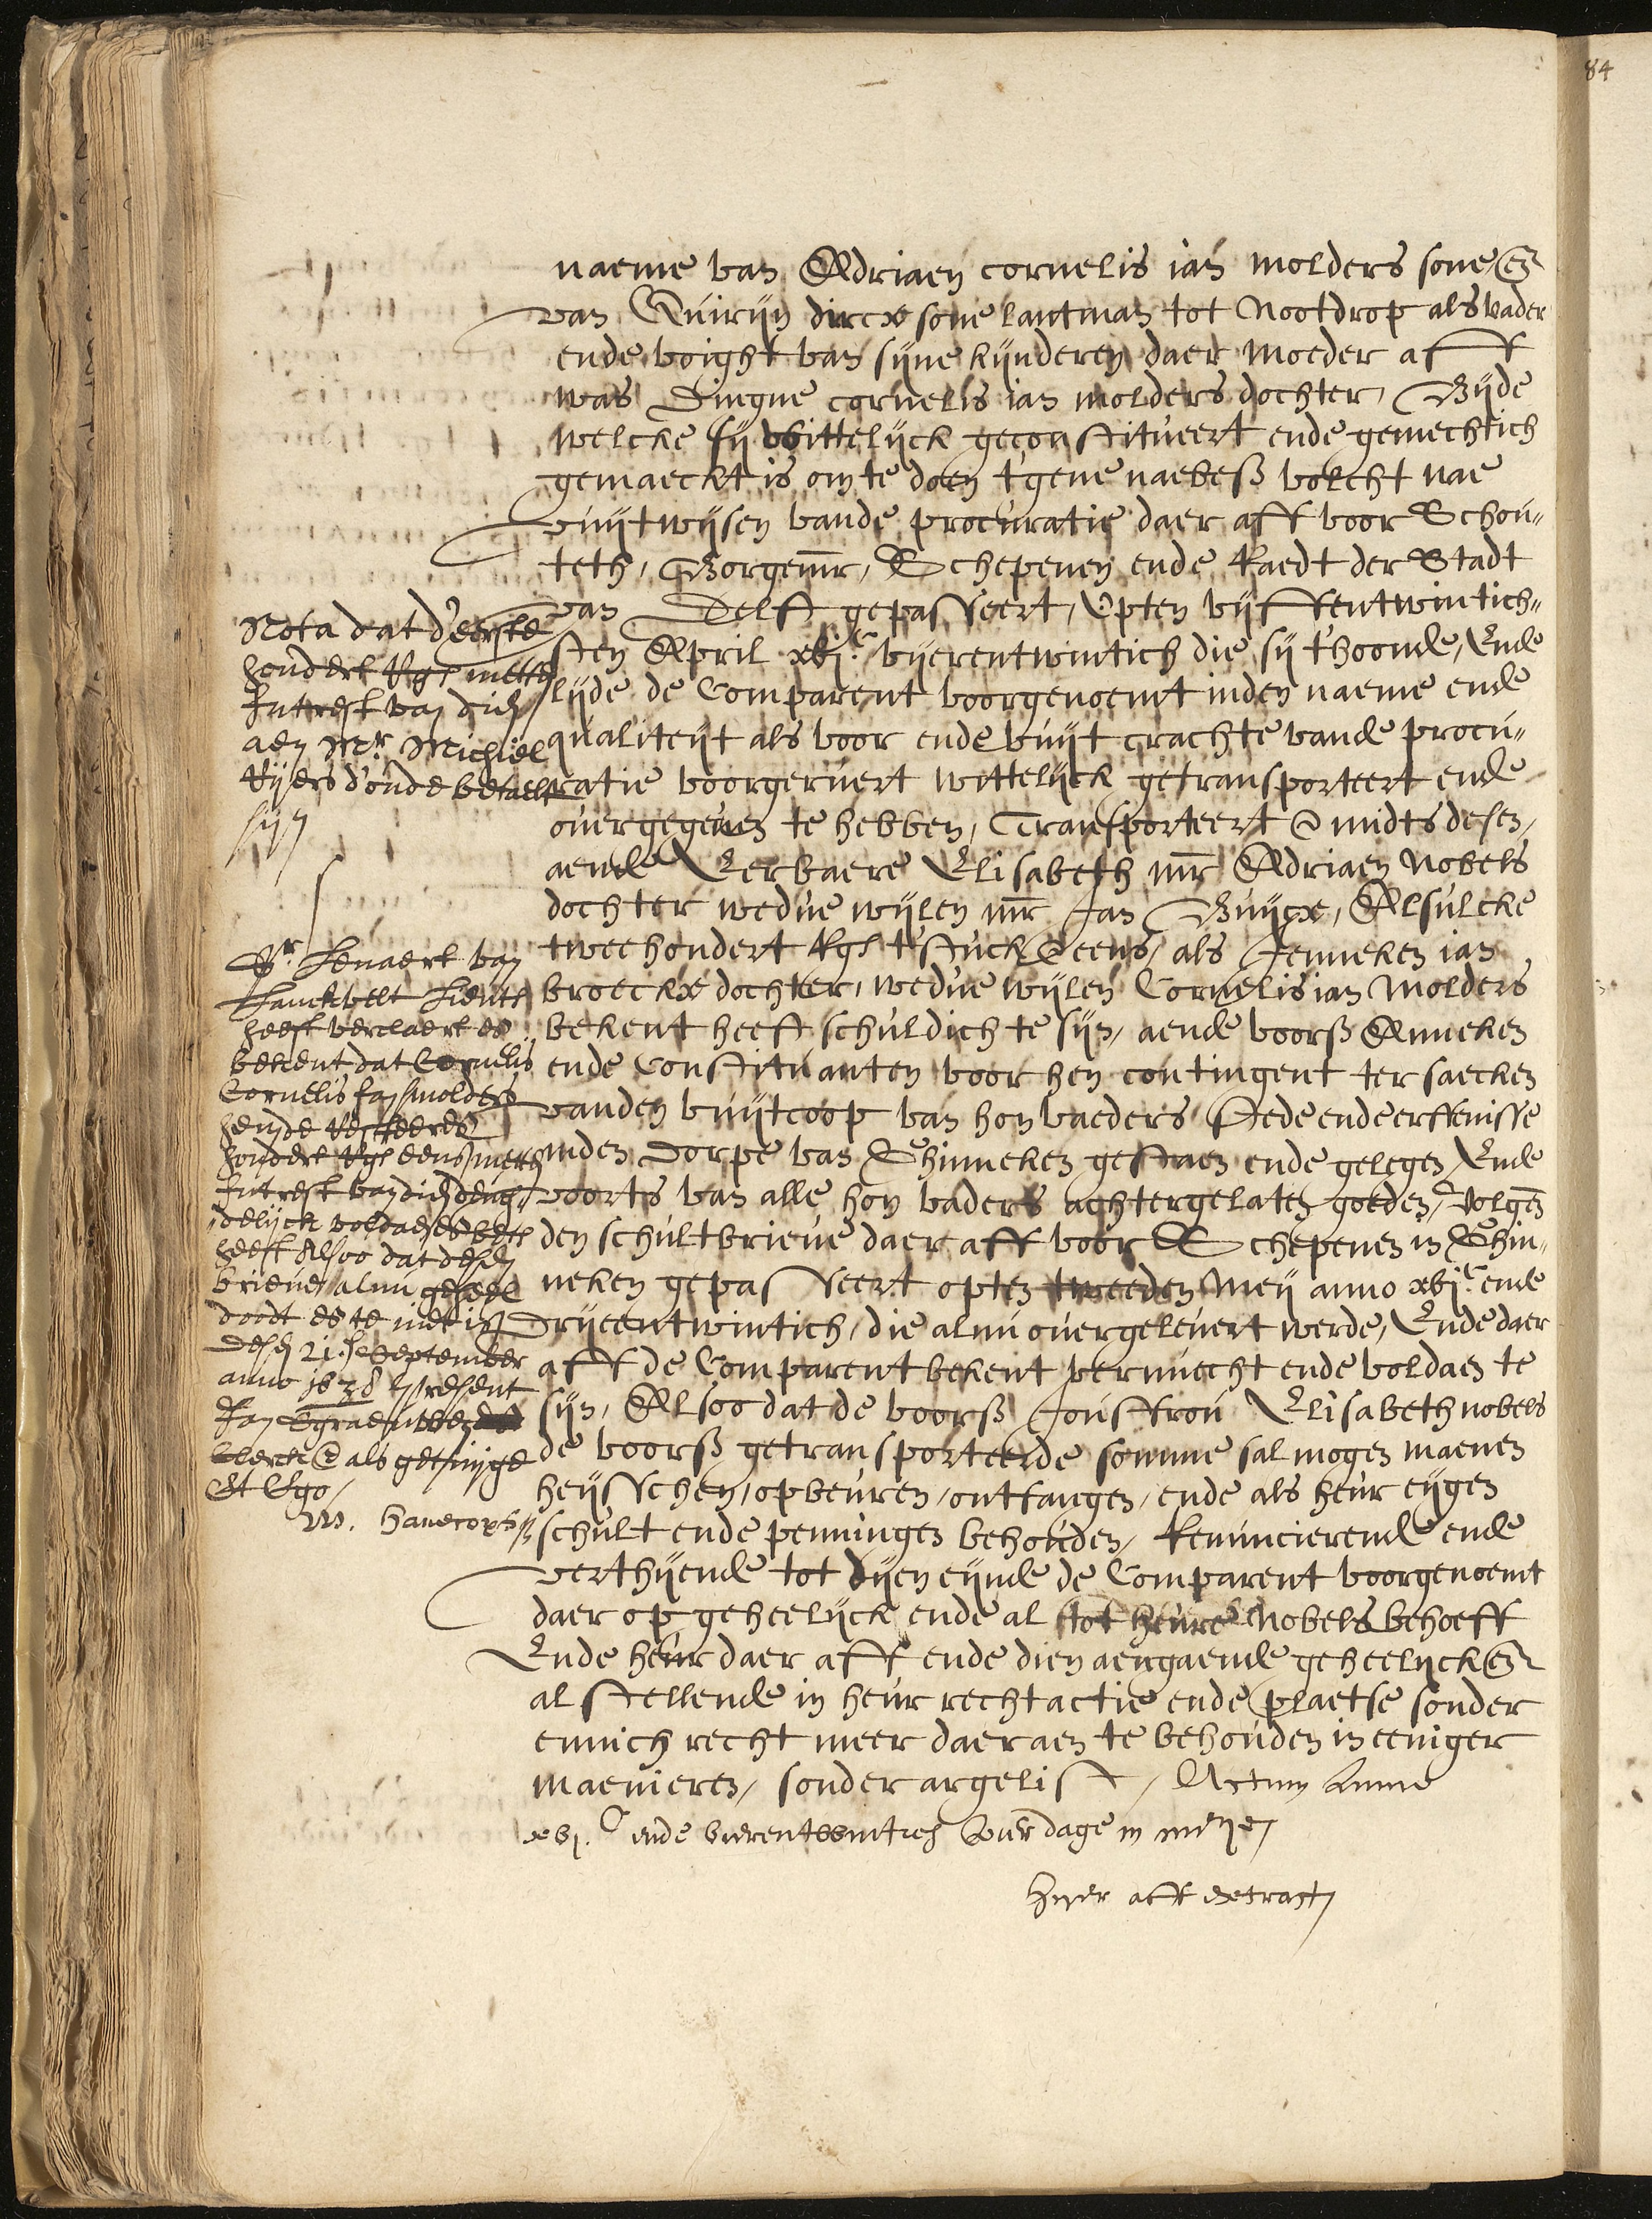 84
naeme van Adriaen cornelis jan molders sone, en
van Quirijn dircx sone lantman tot Nootdrop als vader
ende voight van sijne kijnderen daer moeder aff
was Dingne cornelis jan molders dochter, Bijde
welcke sij wittelijck geconstitueert ende gemechtich
gemaeckt is om te doen tgene naebeß volcht nae
vuijtwijsen vande procuratie daer aff voor Schou„
teth, Borgemr, Schepenen ende Raedt der Stadt
van Delft gepasseert, Opten vijffentwintich„
sten April xvjC vijerentwintich die sij thoonde, Ende
lijde de Comparent voorgenoemt inden naeme ende
qualiteijt als voor ende vuijt crachte vande procu„
ratie voorgeruert wittelijck getransporteert ende
overgegeven te hebben, Transporteert @ midts desen,
aende Eerbaere Elisabeth mr Adriaen Nobels
dochter weduwe wijlen mr Jan Buijcx, Alsulcke
tweehondert Rgls tstuck @ eens, als Jenneken jan
broeckx dochter, weduwe wijlen Cornelis jan Molders
bekent heeft schuldich te sijn, aende voorß Anneken
ende Constituanten voor hen contingent ter saecken
vanden vuijtcoop van hon vaeders stede ende erffenisse
inden dorpe van Ghinneken gestaen ende gelegen, Ende
voorts van alle hon vaders achtergelaten goeden, volgen
den schultbrieve daer aff voor Schepenen in Ghin„
neken gepasseert opten tweeden Meij anno xvjC ende
Drijeentwintich, die alnu overgelevert werde, Ende daer
aff de Comparent bekent vernuecht ende voldaen te
sijn, Alsoo dat de voorß Joufrou Elisabeth nobels
de voorß getransporteerde somme sal mogen maenen
heijsschen, opbeuren, ontfangen, ende als heur eijgen
schult ende penningen behouden, Renuncierende ende
verthijende tot dijen eijnde de Comparent voorgenoemt
daer op geheelijck ende al tot heure Nobels behoeff
Ende heur daer aff ende dien aengaende geheelijck en
al stellende in heur recht actie ende plaetse sonder
ennich recht meer daer aen te behouden in eeniger
maenieren, sonder argelist, Actum Anno
xvj.C ende vierentwintich vier dage in meije
Hijer aff extract
Nota dat d'eerste
hondert Rgls metten
Intrest van dien
aen Mr Michiel
Rijers d'oude betaelt
sijn
Sr. Lenaert van
Lanckvelt Lieutt
heeft verclaert en
bekent dat Cornelis
Cornelis Jan Smolders
hem de
hondert Rgls eens metten
Intrest van dien deug„
delijck voldaen
heeft Alsoo dat desen
brieve alnu geheel
doodt en te niet is
desen 21.en September
anno 1638 present
Jan
clerck @ als getuijge
Et Ego
M. Havecopß